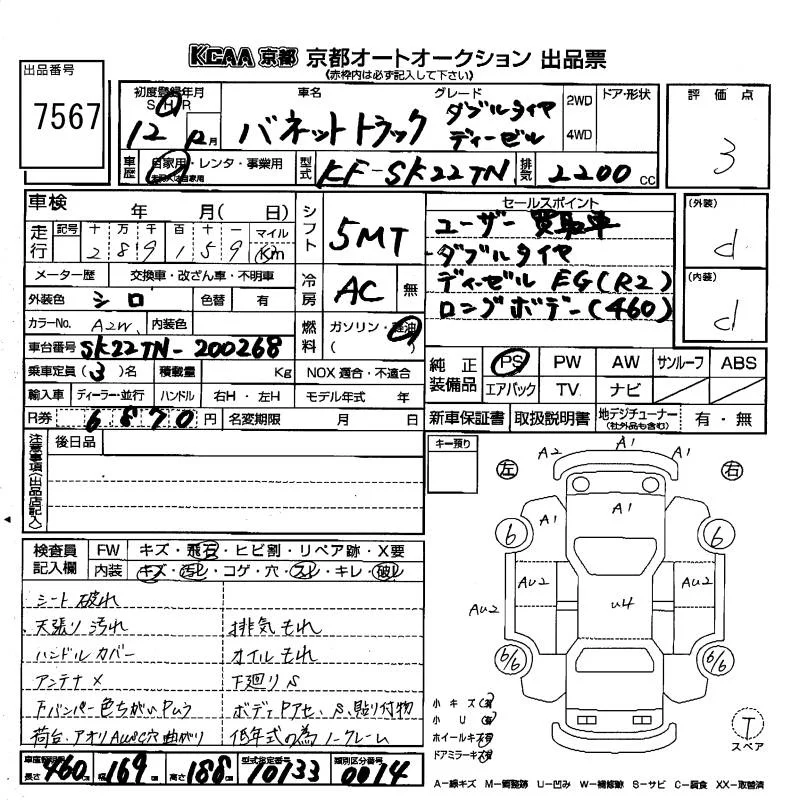 KCAA 京都 京都オートオークション 出品票
(赤枠内は必ず記入して下さい)
出品番号
7567
初度登録年月
S H R
12 年 月
車名
バネットトラック
グレード
ダブルタイヤ
ディーゼル
2WD
4WD
ドア・形状
評価点
3
車歴
自家用・レンタ・事業用
型式
KF-SK22TN
排気
2200 CC
車検
年 月( 日)
走行
記号 十 万 千 百 十 一 マイル
2 8 9 1 5 9 Km
シフト
5MT
セールスポイント
ユーザー買取車
ダブルタイヤ
ディーゼル EG(R2)
ロングボデー(460)
(外装)
d
(内装)
d
メーター歴 交換車・改ざん車・不明車
冷房
AC
無
外装色 シロ 色替 有
カラーNo. A2W 内装色
燃料
ガソリン・軽油
( )
車台番号 SK22TN-200268
乗車定員 (3)名 積載量 Kg NOX適合・不適合
輸入車 ディーラー・並行 ハンドル 右H・左H モデル年式 年
R券 6870 円 名変期限 月 日
純正装備品
PS PW AW サンルーフ ABS
エアバック TV ナビ
新車保証書 取扱説明書 地デジチューナー(社外品も含む) 有・無
注意事項(出品店記入)
後日品
キー預り
左
右
A2 A1 A1
A1 A1
6 6
AU2 AU2 AU2
U4
6/6 6/6
検査員記入欄
FW キズ・飛石・ヒビ割・リペア跡・X要
内装 キズ・汚レ・コゲ・穴・スレ・キレ・破レ
シート破れ
天張り汚れ 排気もれ
ハンドルカバー オイルもれ
アンテナX 下廻りS
下バンパー色ちがいPムラ ボディPアセ、S、貼り付物
荷台・アオリAUSC穴曲がり 低年式の為ノークレーム
小キズ
小U
ホイールキズ
ドアミラーキズ
T
スペア
長さ 460 幅 169 高さ 188 型式指定番号 10133 類別区分番号 0014
A-線キズ M-調整跡 U-凹み W-補修跡 S-サビ C-腐食 XX-取替済